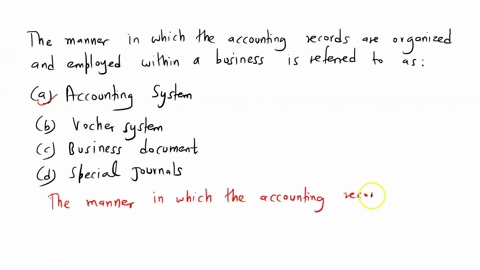 The manner in which the accounting records are organized
and employed within a business is referred to as:
(a) Accounting System
(b) Vocher system
(c) Business document
(d) Special Journals
The manner in which the accounting